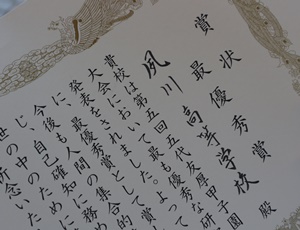 賞状
最優秀賞
夙川高等学校 殿
貴校は第五回五代友厚甲子園
大会において最も優秀な研
発表をされました。よって
に、最優秀賞として
今後も人間の集合的
じ、自己確知に務め
世の中のため